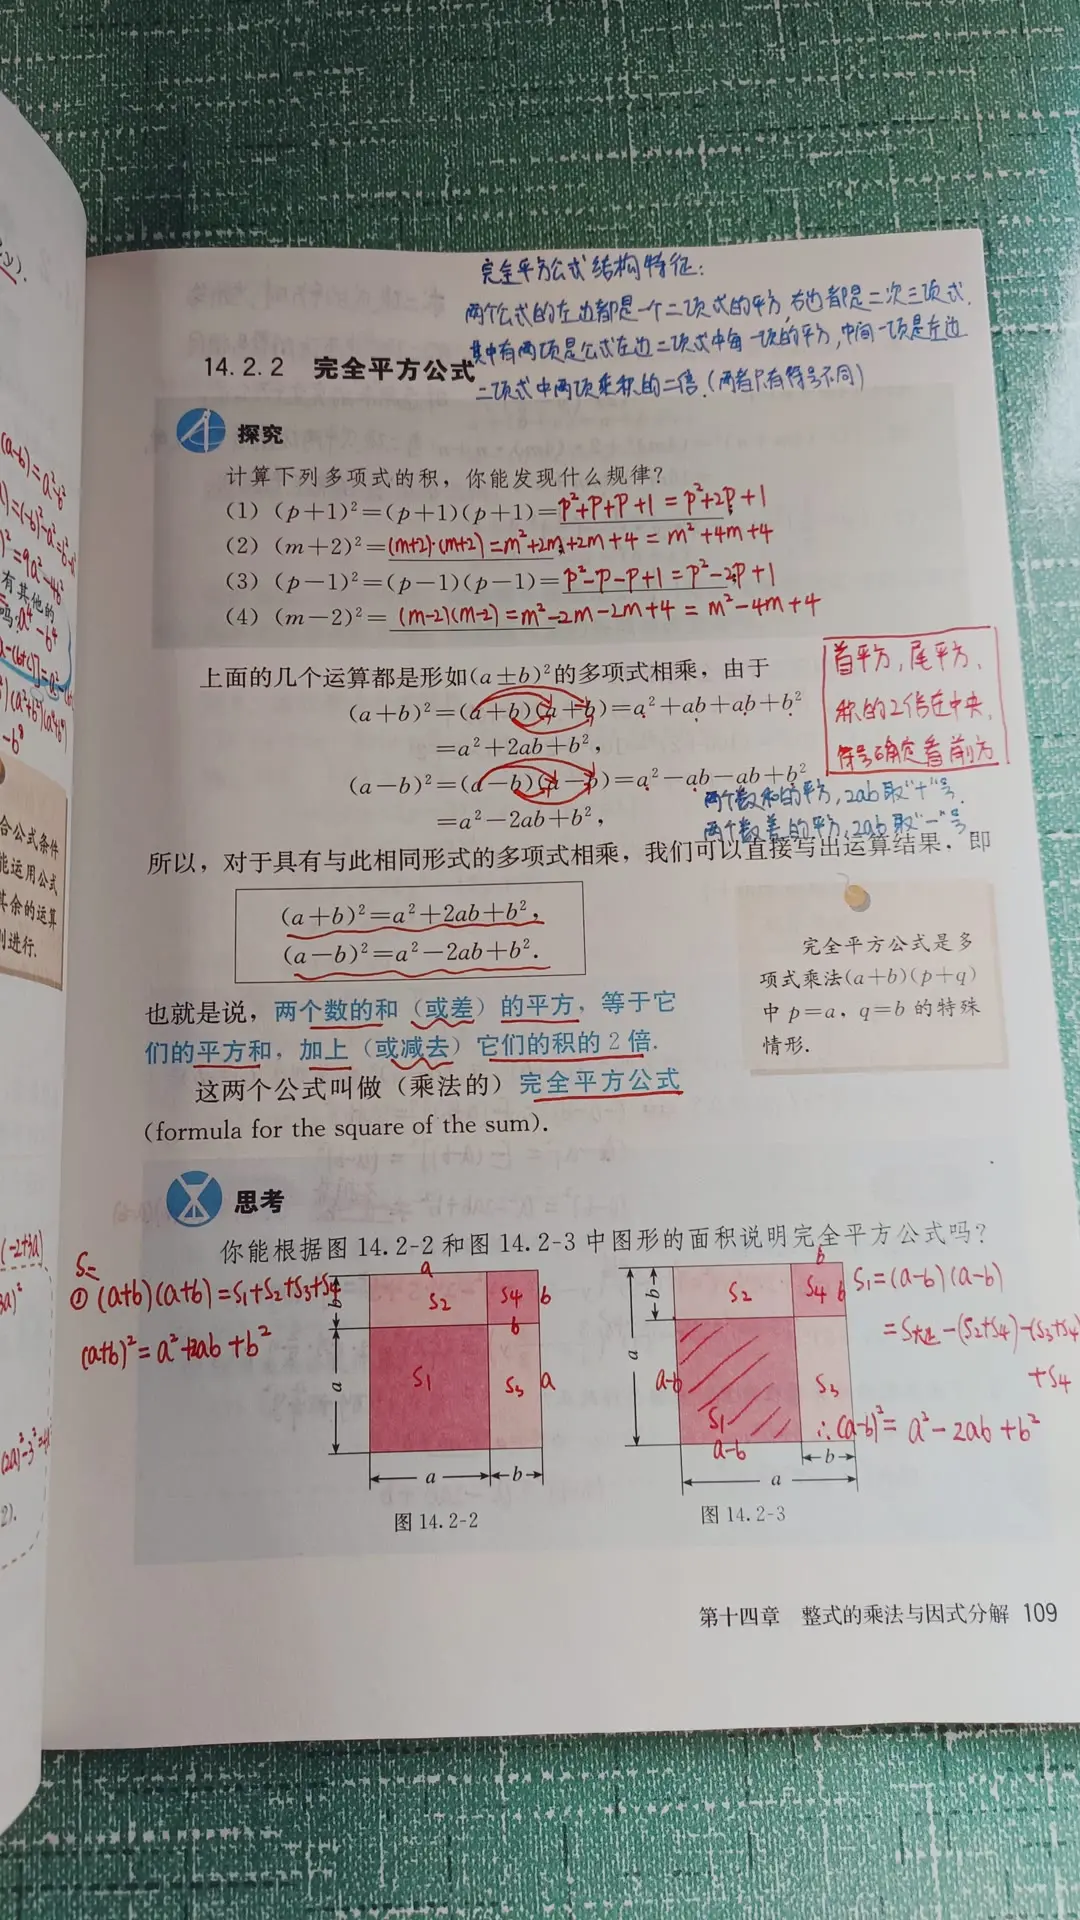 完全平方公式结构特征:
两个公式的左边都是一个二项式的平方,右边都是二次三项式.
其中有两项是公式左边二项式中每一项的平方,中间一项是左边
二项式中两项乘积的二倍.(两者只有符号不同)
14.2.2 完全平方公式
探究
计算下列多项式的积,你能发现什么规律?
(1) (p+1)²=(p+1)(p+1)=p²+p+p+1=p²+2p+1
(2) (m+2)²=(m+2)·(m+2)=m²+2m+2m+4=m²+4m+4
(3) (p−1)²=(p−1)(p−1)=p²-p-p+1=p²-2p+1
(4) (m−2)²=(m-2)(m-2)=m²-2m-2m+4=m²-4m+4
上面的几个运算都是形如(a±b)²的多项式相乘,由于
(a+b)²=(a+b)(a+b)=a²+ab+ab+b²
=a²+2ab+b²,
(a−b)²=(a−b)(a−b)=a²−ab−ab+b²
=a²−2ab+b²,
首平方,尾平方,
积的2倍在中央,
符号确定看前方
两个数和的平方,2ab取"+"号.
两个数差的平方,2ab取"-"号
所以,对于具有与此相同形式的多项式相乘,我们可以直接写出运算结果,即
(a+b)²=a²+2ab+b²,
(a−b)²=a²−2ab+b².
完全平方公式是多
项式乘法(a+b)(p+q)
中p=a,q=b的特殊
情形.
也就是说,两个数的和(或差)的平方,等于它
们的平方和,加上(或减去)它们的积的2倍.
这两个公式叫做(乘法的)完全平方公式
(formula for the square of the sum).
思考
你能根据图14.2-2和图14.2-3中图形的面积说明完全平方公式吗?
S=
①(a+b)(a+b)=S1+S2+S3+S4
(a+b)²=a²+2ab+b²
a
S2
S4
b
b
b
S1
S3
a
a
a
b
图14.2-2
b
S2
S4
b
b
a
a-b
S1
S3
a-b
b
a
图14.2-3
S1=(a-b)(a-b)
=S大正-(S2+S4)-(S3+S4)
+S4
∴(a-b)²=a²-2ab+b²
第十四章 整式的乘法与因式分解 109
(a-b)=a²-b²
)²=9a²-4b²
有其他的
吗?a⁴-b⁴
-b⁸
合公式条件
能运用公式
其余的运算
则进行.
(-2+3a)
3a)²
(2a)²-3²=4
2).